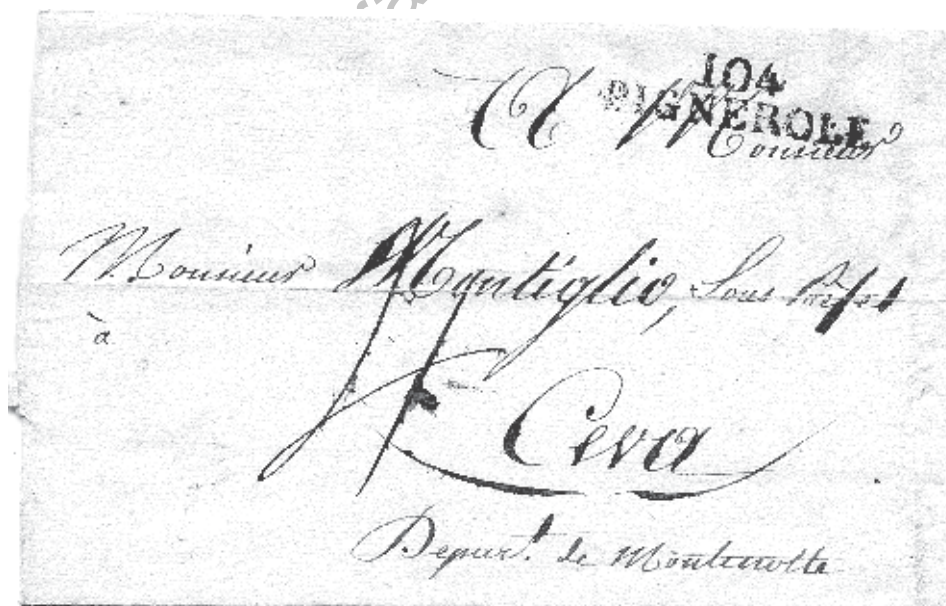 104
PIGNEROLE
A Monsieur
Monsieur Montiglio, Sous Préfet
à
Ceva
Depart.t de Montenotte